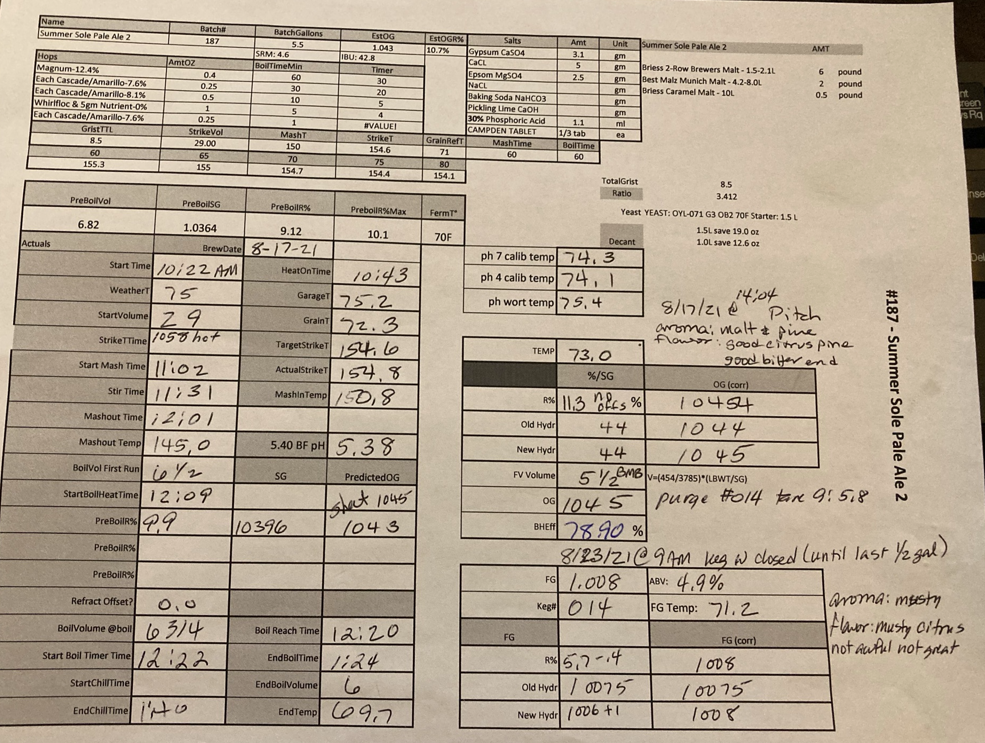 Name Batch# BatchGallons EstOG EstOGR%
Summer Sole Pale Ale 2 187 5.5 1.043 10.7%
SRM: 4.6 IBU: 42.8
Hops AmtOZ BoilTimeMin Timer
Magnum-12.4% 0.4 60 30
Each Cascade/Amarillo-7.6% 0.25 30 20
Each Cascade/Amarillo-8.1% 0.5 10 5
Whirlfloc & 5gm Nutrient-0% 1 5 4
Each Cascade/Amarillo-7.6% 0.25 1 #VALUE!
GristTTL StrikeVol MashT StrikeT GrainRefT
8.5 29.00 150 154.6 71
60 65 70 75 80
155.3 155 154.7 154.4 154.1
Salts Amt Unit
Gypsum CaSO4 3.1 gm
CaCL 5 gm
Epsom MgSO4 2.5 gm
NaCL gm
Baking Soda NaHCO3 gm
Pickling Lime CaOH gm
30% Phosphoric Acid 1.1 ml
CAMPDEN TABLET 1/3 tab ea
MashTime BoilTime
60 60
Summer Sole Pale Ale 2 AMT
Briess 2-Row Brewers Malt - 1.5-2.1L 6 pound
Best Malz Munich Malt - 4.2-8.0L 2 pound
Briess Caramel Malt - 10L 0.5 pound
TotalGrist 8.5
Ratio 3.412
Yeast YEAST: OYL-071 G3 OB2 70F Starter: 1.5 L
1.5L save 19.0 oz
Decant 1.0L save 12.6 oz
PreBoilVol PreBoilSG PreBoilR% PreboilR%Max FermT°
6.82 1.0364 9.12 10.1 70F
Actuals BrewDate 8-17-21
Start Time 10:22 AM HeatOnTime 10:43
WeatherT 75 GarageT 75.2
StartVolume 29 GrainT 72.3
StrikeTTime 1058 hot TargetStrikeT 154.6
Start Mash Time 11:02 ActualStrikeT 154.8
Stir Time 11:31 MashInTemp 150.8
Mashout Time 12:01
Mashout Temp 145.0 5.40 BF pH 5.38
BoilVol First Run 6 1/2 SG PredictedOG
StartBoilHeatTime 12:09 1045
PreBoilR% 9.9 10396 1043
PreBoilR%
PreBoilR%
Refract Offset? 0.0
BoilVolume @boil 6 3/4 Boil Reach Time 12:20
Start Boil Timer Time 12:22 EndBoilTime 1:24
StartChillTime EndBoilVolume 6
EndChillTime 1:40 EndTemp 69.7
ph 7 calib temp 74.3
ph 4 calib temp 74.1
ph wort temp 75.4
8/17/21 @ 14:04 Pitch
aroma: malt & pine
flavor: good citrus pine
good bitter end
TEMP 73.0
%/SG OG (corr)
R% 11.3 no offs % 10454
Old Hydr 44 1044
New Hydr 44 1045
FV Volume 5 1/2 BMB V=(454/3785)*(LBWT/SG)
OG 1045 purge #014 tare 9: 5.8
BHEff 78.90 %
8/23/21 @ 9AM keg w closed (until last 1/2 gal)
FG 1.008 ABV: 4.9%
Keg# 014 FG Temp: 71.2
FG FG (corr)
R% 5.7-.4 1008
Old Hydr 10075 10075
New Hydr 1006 +1 1008
aroma: musty
flavor: musty citrus
not awful not great
#187 - Summer Sole Pale Ale 2